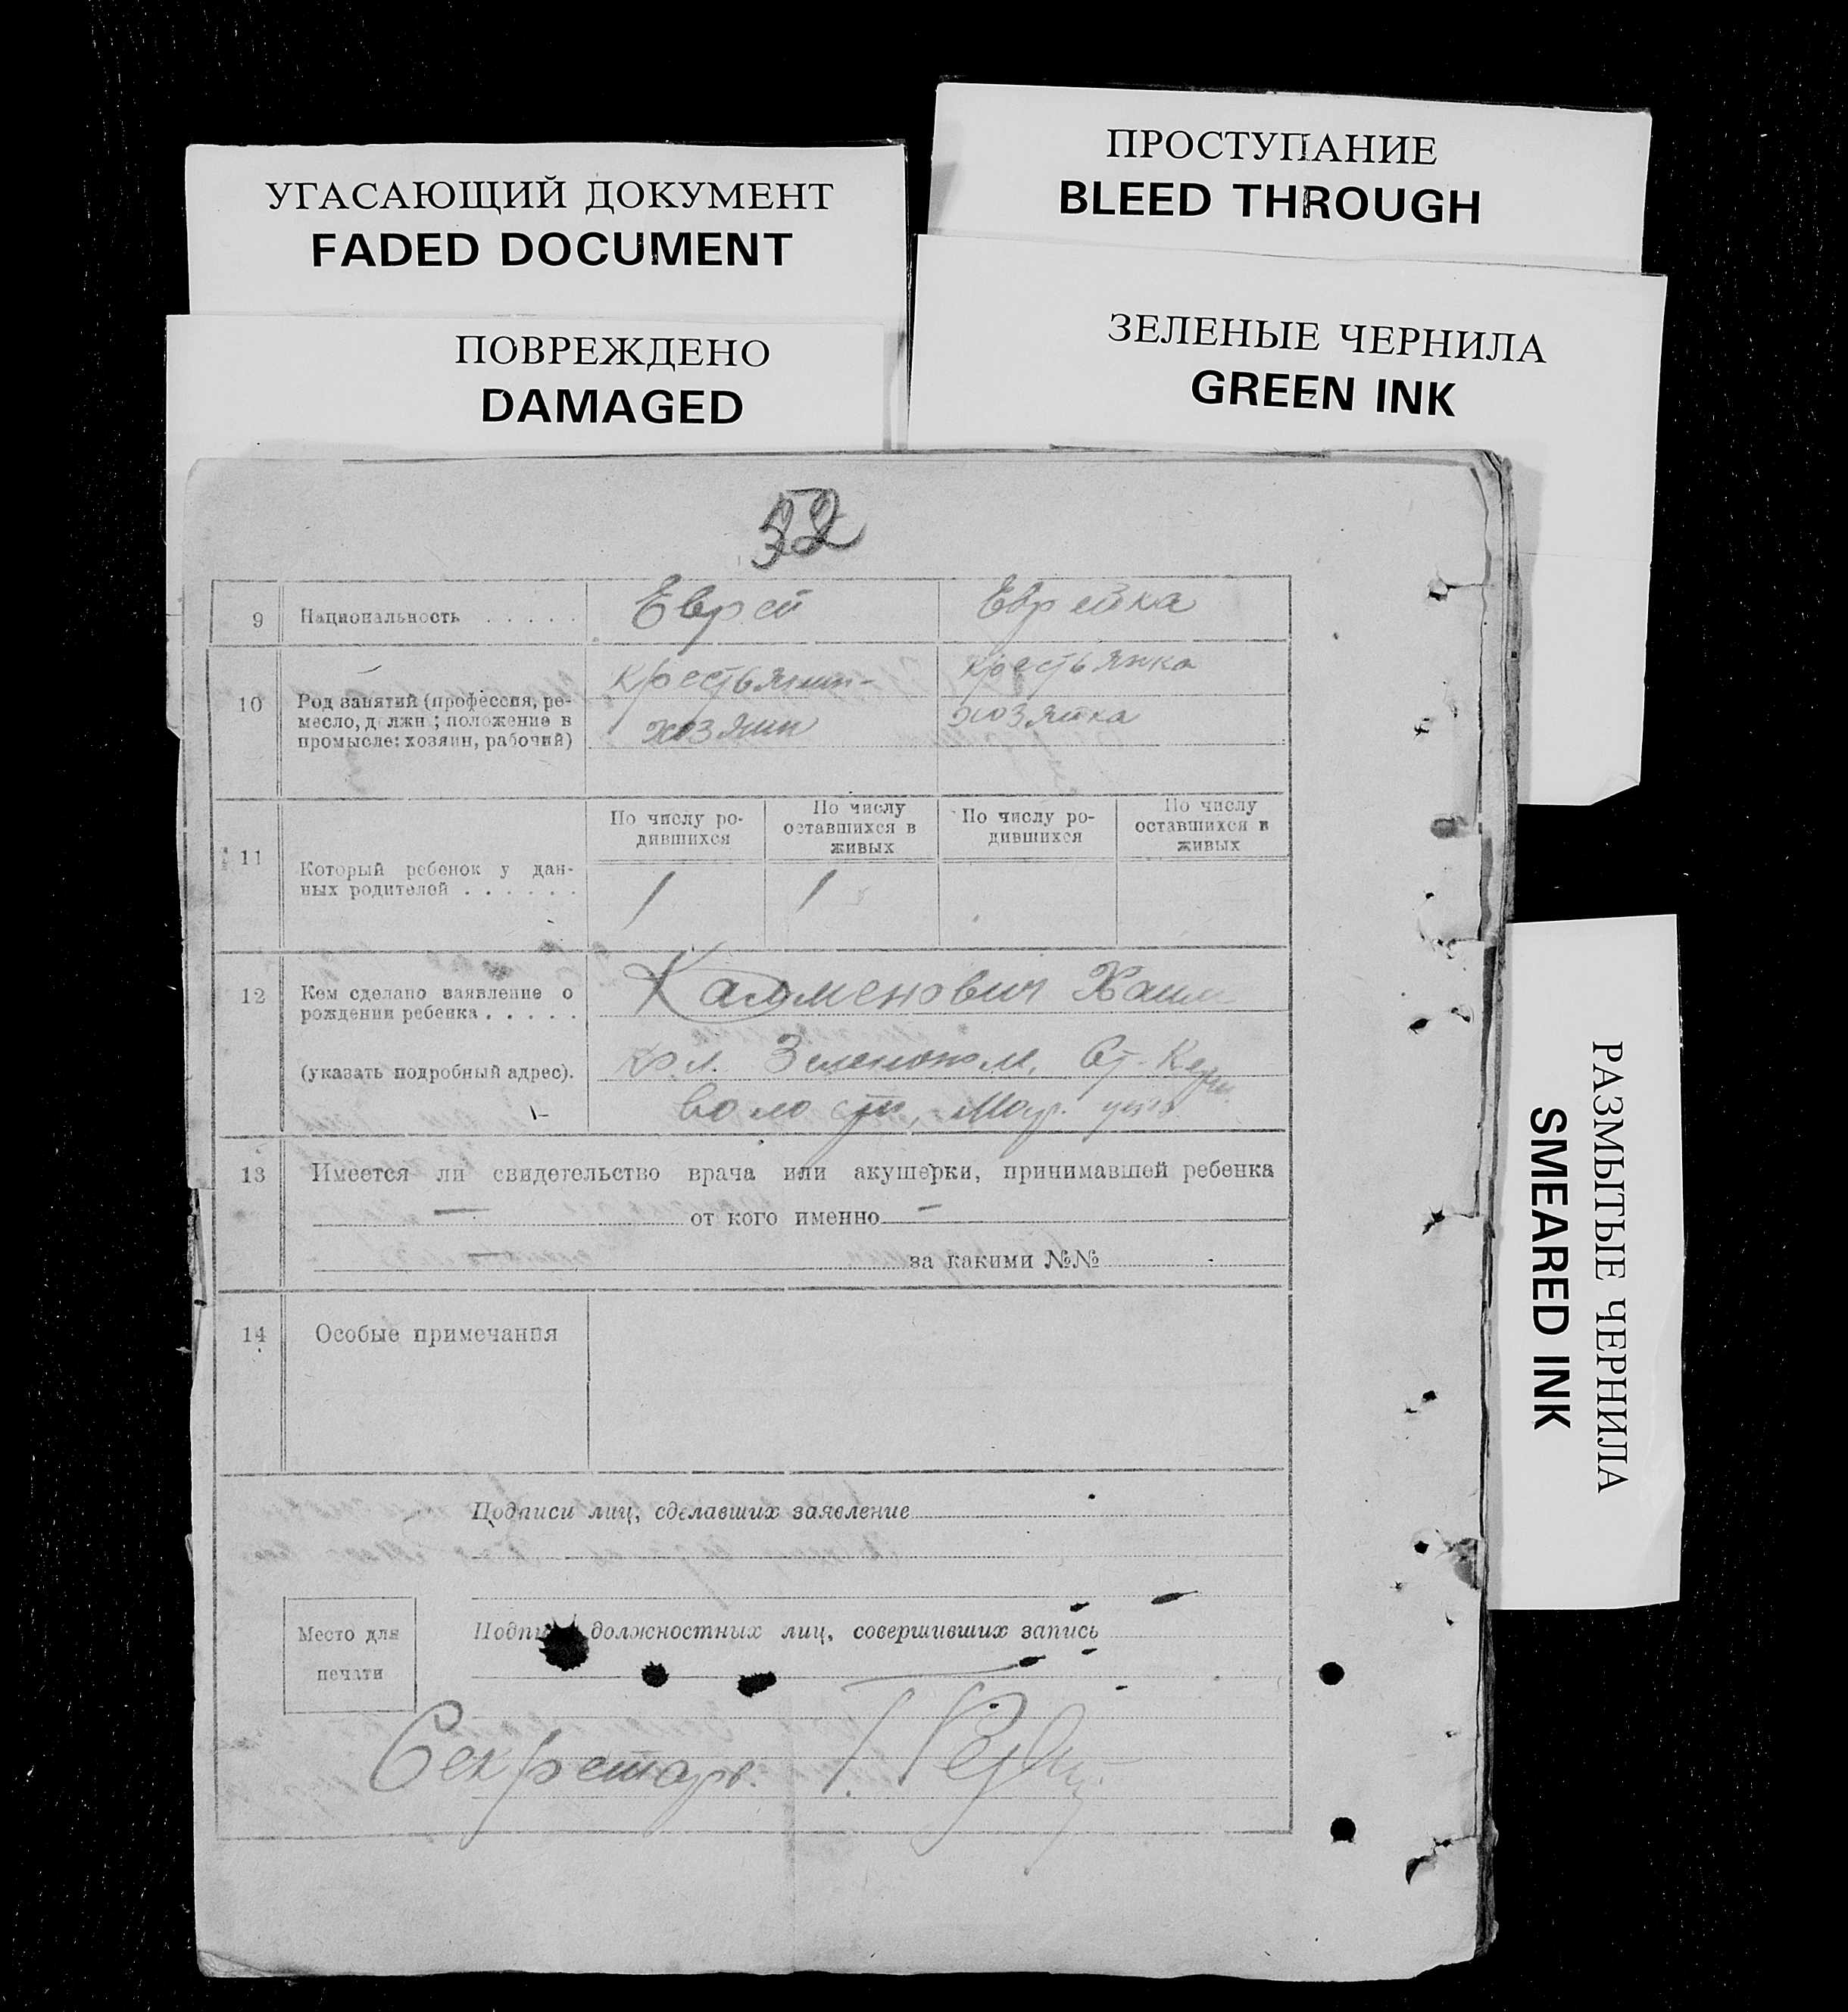 ПРОСТУПАНИЕ
BLEED THROUGH
УГАСАЮЩИЙ ДОКУМЕНТ
FADED DOCUMENT
ЗЕЛЕНЫЕ ЧЕРНИЛА
GREEN INK
ПОВРЕЖДЕНО
DAMAGED
32
9 Национальность . . . . . Еврей Еврейка
10 Род занятий (профессия, ре-
месло, должн; положение в
промысле: хозяин, рабочий)
крестьянин-
хозяин
крестьянка
хозяйка
11 Который ребенок у дан-
ных родителей . . . . . .
По числу ро-
дившихся
По числу
оставшихся в
живых
По числу ро-
дившихся
По числу
оставшихся в
живых
1 1
12 Кем сделано заявление о
рождении ребенка . . . . .
(указать подробный адрес).
Калменович
кол. Зеленополе, Ст.
волости, Мар.
13 Имеется ли свидетельство врача или акушерки, принимавшей ребенка
— от кого именно —
— за какими №№
14 Особые примечания
Подписи лиц, сделавших заявление
Место для
печати
Подписи должностных лиц, совершивших запись
Секретарь
РАЗМЫТЫЕ ЧЕРНИЛА
SMEARED INK